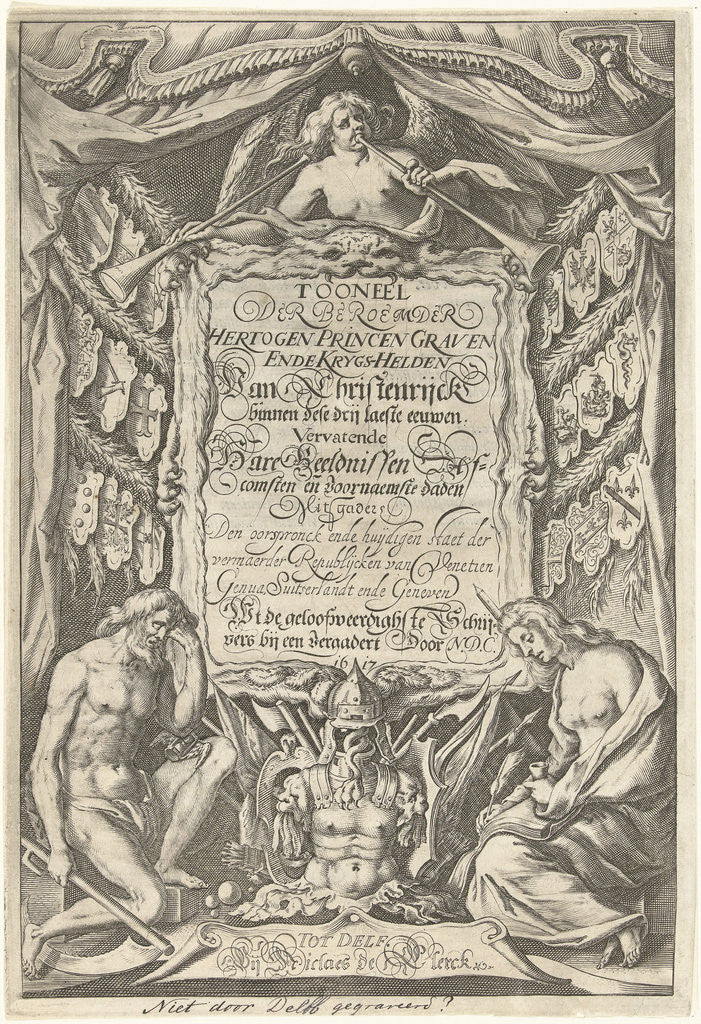 TOONEEL
DER BEROEMDER
HERTOGEN PRINCEN GRAVEN
ENDE KRYGS-HELDEN
Van Christenrijck
binnen dese drij laeste eeuwen.
Vervatende
Hare Beeldnissen Af=
comsten en Voornaemste daden
Mitsgaders
Den oorspronck ende huydigen staet der
vermaerder Republijcken van Venetien
Genua, Suitserlandt ende Geneven
Wt de geloofweerdighste Schrij=
vers bij een Vergadert Door N.D.C.
16 17
TOT DELF.
Bij Niclaes de Clerck
Niet door Delff gegraveerd?